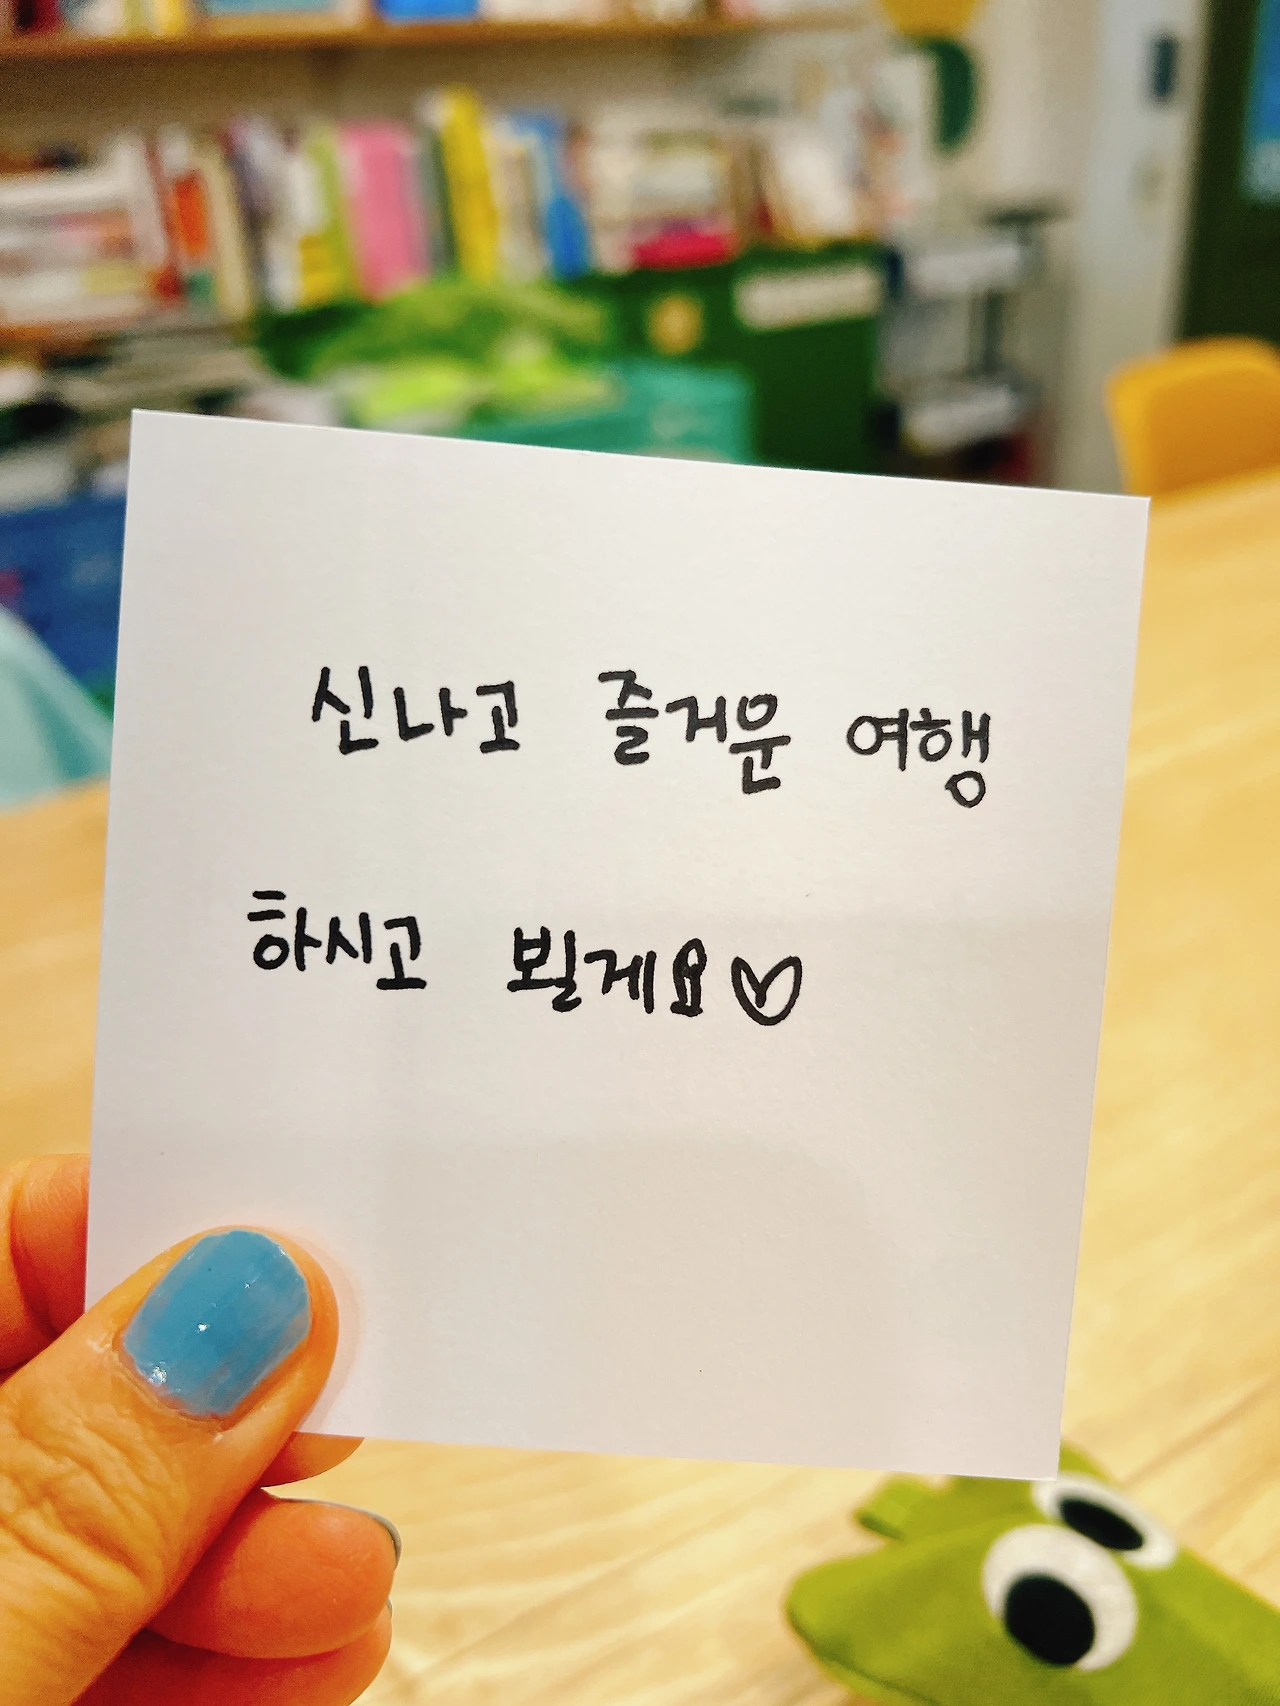 신나고 즐거운 여행
하시고 뵐게요♡